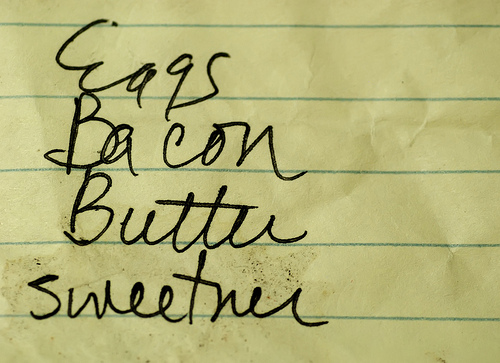 Eggs
Bacon
Butter
sweetner